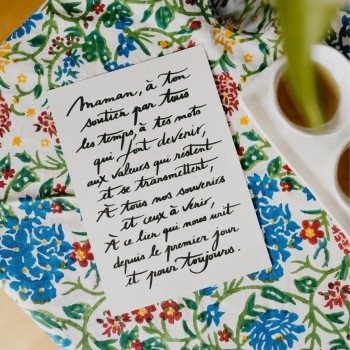 Maman, à ton
soutien par tous
les temps, à tes mots
qui font devenir,
aux valeurs qui restent
et se transmettent,
À tous nos souvenirs
et ceux à venir,
À ce lien qui nous unit
depuis le premier jour
et pour toujours.